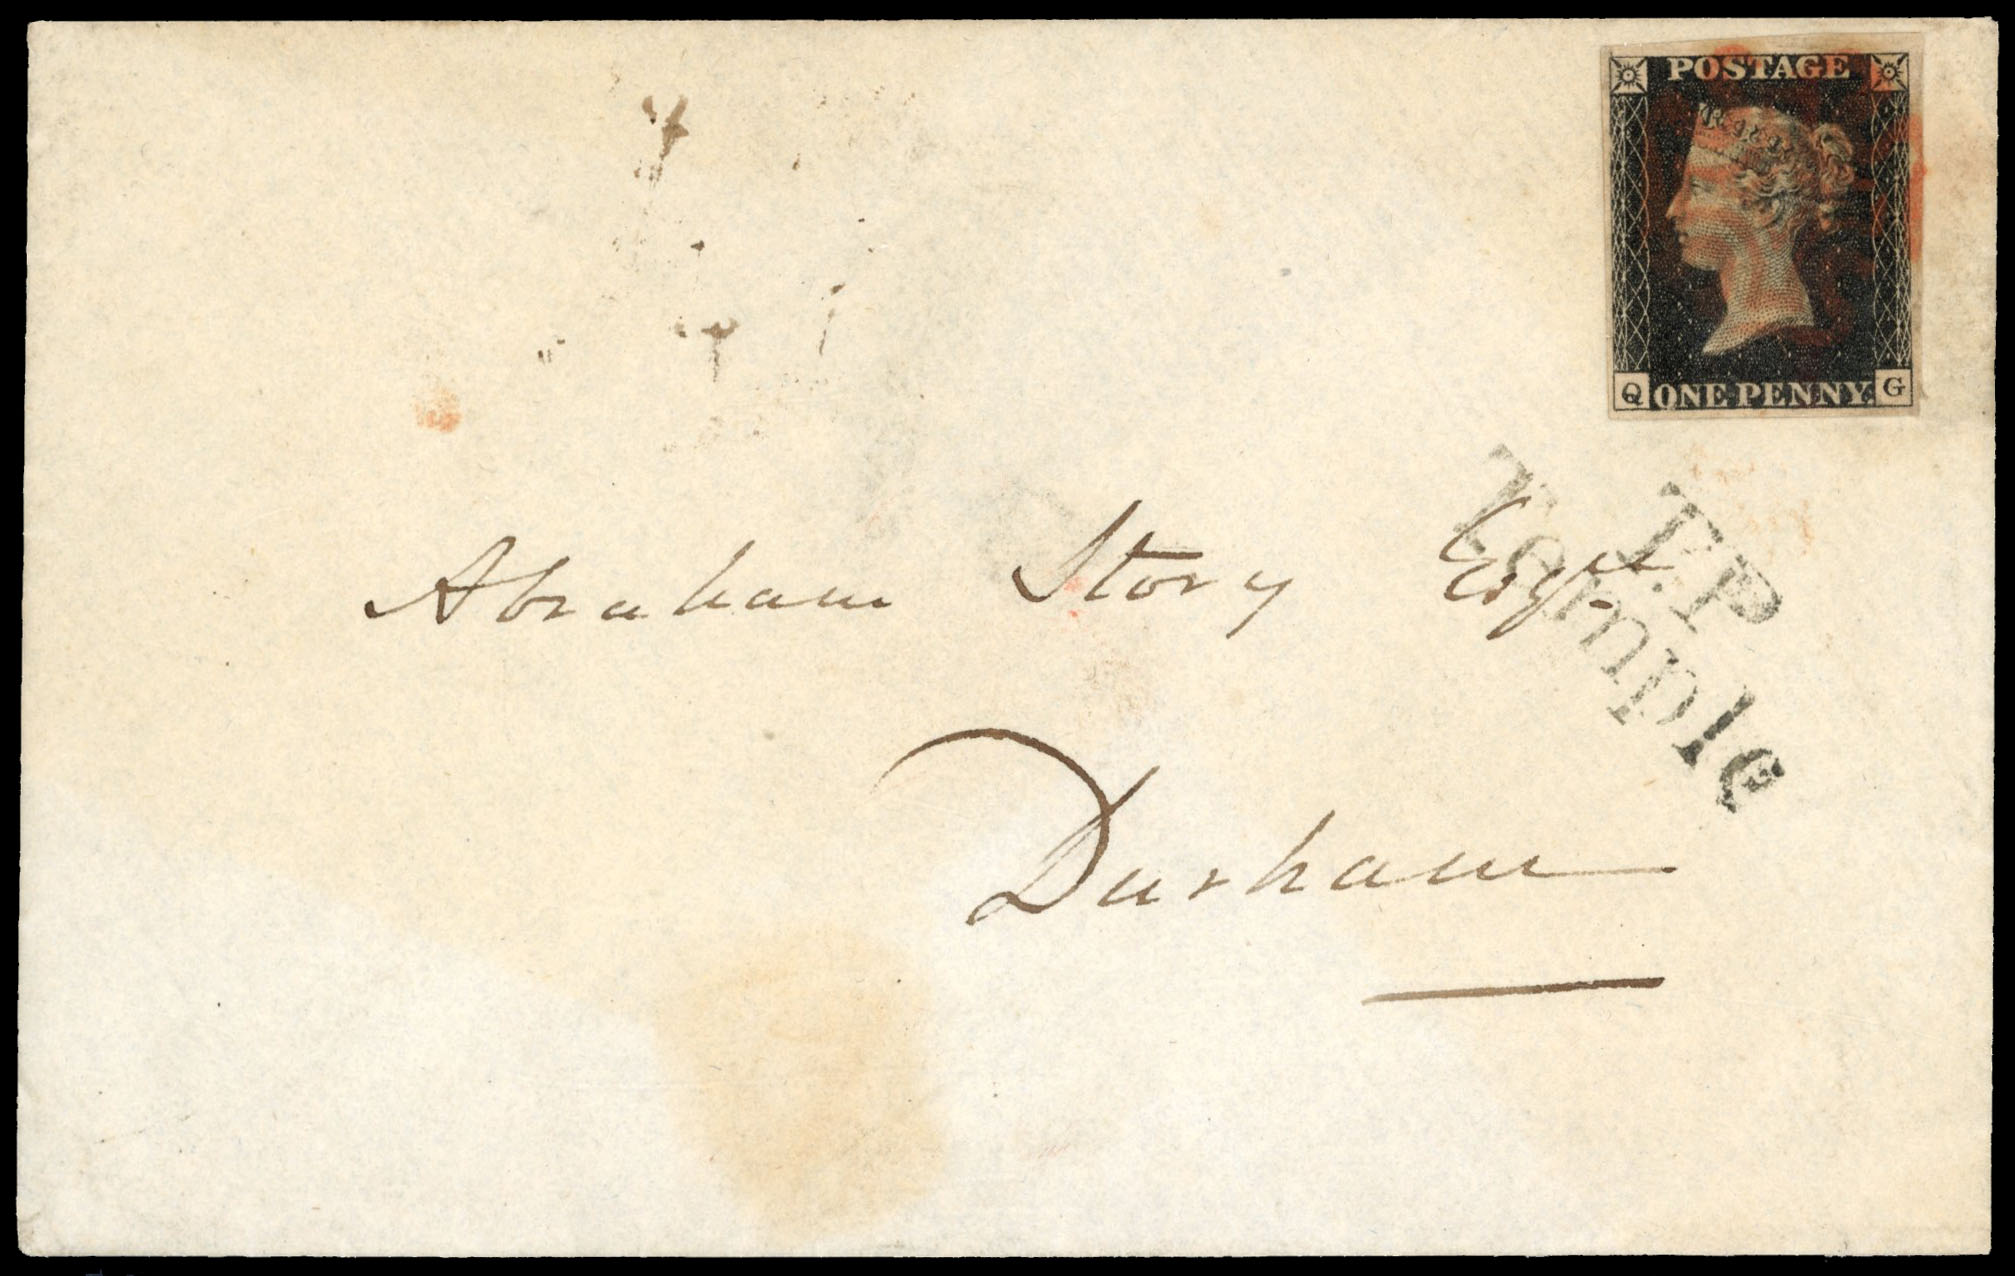 POSTAGE
Q ONE PENNY. G
T.P
Temple
Abraham Story Esqre
Durham